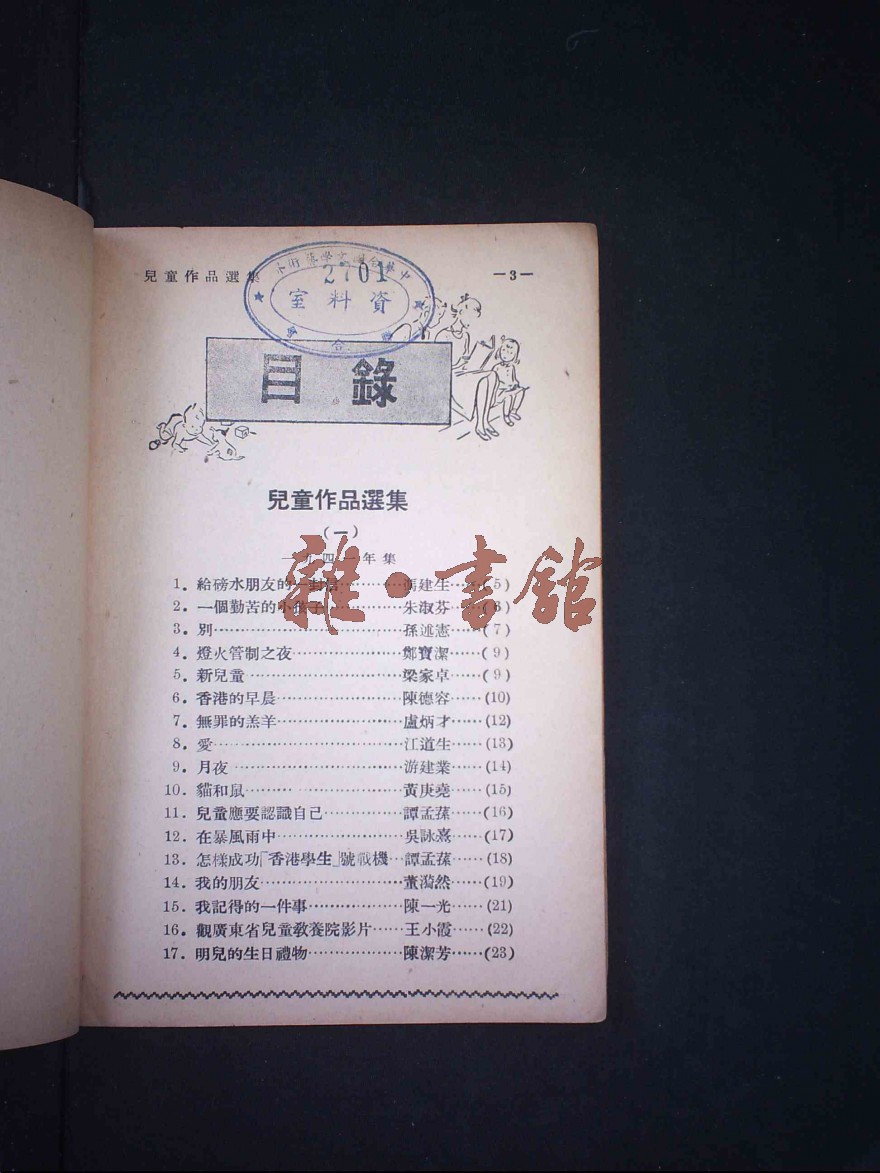 兒童作品選集 —3—
中華全國文學藝術
2701
資料室
目錄
兒童作品選集
(一)
一九四一年集
1. 給磅水朋友的一封信…………馮建生……(5)
2. 一個勤苦的小孩子…………朱淑芬……(6)
3. 別…………孫述憲……(7)
4. 燈火管制之夜…………鄭寶潔……(9)
5. 新兒童…………梁家卓……(9)
6. 香港的早晨…………陳德容……(10)
7. 無罪的羔羊…………盧炳才……(12)
8. 愛…………江道生……(13)
9. 月夜…………游建業……(14)
10. 貓和鼠…………黃庚堯……(15)
11. 兒童應要認識自己…………譚孟蓀……(16)
12. 在暴風雨中…………吳詠熹……(17)
13. 怎樣成功「香港學生」號戰機…譚孟蓀……(18)
14. 我的朋友…………董漪然……(19)
15. 我記得的一件事…………陳一光……(21)
16. 觀廣東省兒童教養院影片……王小霞……(22)
17. 明兒的生日禮物…………陳潔芳……(23)
雜·書館